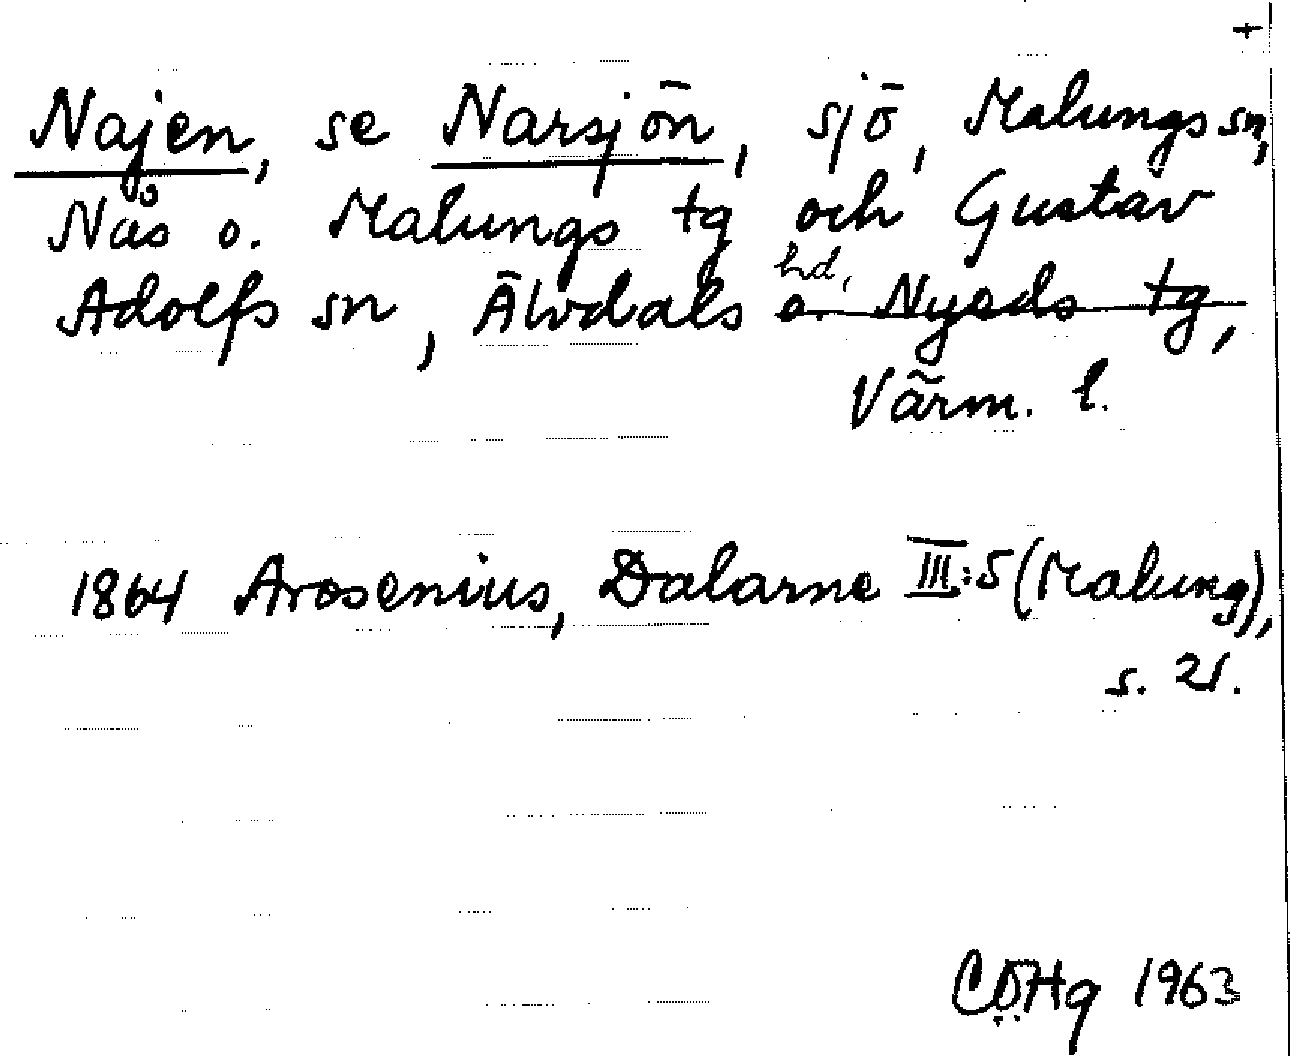 +
Najen, se Narsjön, sjö, Malungs sn,
Nås o. Malungs tg och Gustav
Adolfs sn, Älvdals hd, o. Nyeds tg,
Värm. l.
1864 Arosenius, Dalarne III:5 (Malung),
s. 21.
CÖHg 1963